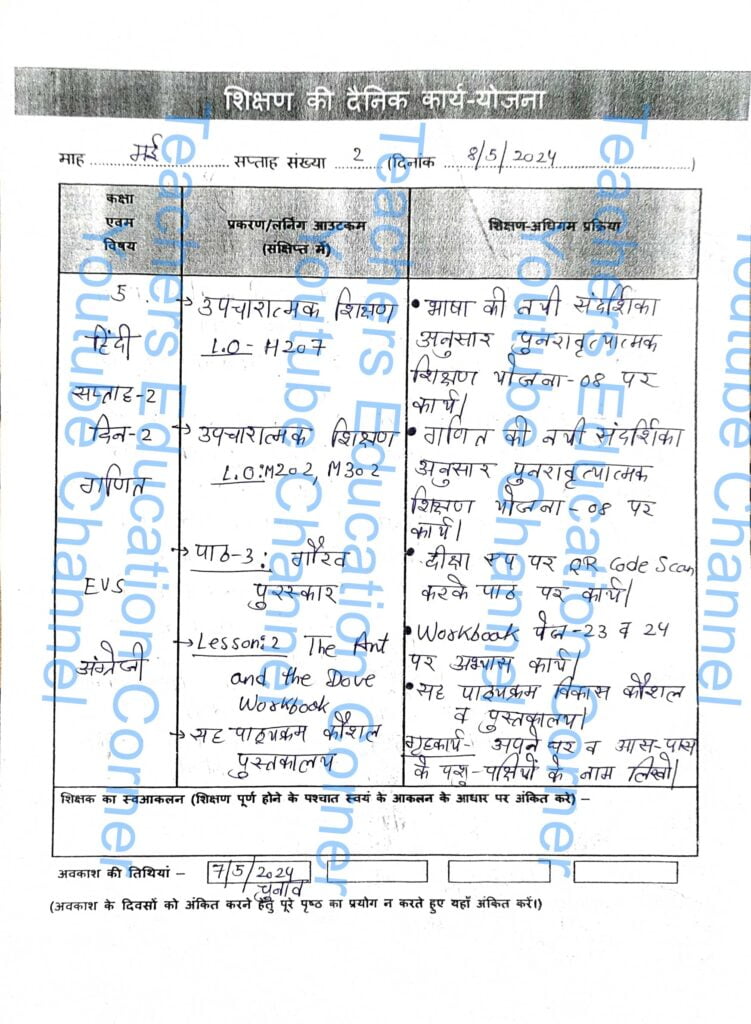 शिक्षण की दैनिक कार्य-योजना
माह मई सप्ताह संख्या 2 (दिनांक 8/5/2024)
कक्षा
एवम
विषय
प्रकरण/लर्निंग आउटकम
(संक्षिप्त में)
शिक्षण-अधिगम प्रक्रिया
5
हिंदी
सप्ताह-2
दिन-2
→ उपचारात्मक शिक्षण
L.O- H207
• भाषा की नयी संदर्शिका
अनुसार पुनरावृत्यात्मक
शिक्षण योजना-08 पर
कार्य।
गणित
→ उपचारात्मक शिक्षण
L.O: M202, M302
• गणित की नयी संदर्शिका
अनुसार पुनरावृत्यात्मक
शिक्षण योजना-08 पर
कार्य।
EVS
→ पाठ-3: गौरव
पुरस्कार
• दीक्षा एप पर QR Code Scan
करके पाठ पर कार्य।
अंग्रेजी
→ Lesson:2 The Ant
and the Dove
Workbook
• Workbook पेज-23 व 24
पर अभ्यास कार्य।
→ सह पाठ्यक्रम कौशल
पुस्तकालय
• सह पाठ्यक्रम विकास कौशल
व पुस्तकालय।
गृहकार्य- अपने घर व आस-पास
के पशु-पक्षियों के नाम लिखो।
शिक्षक का स्वआकलन (शिक्षण पूर्ण होने के पश्चात स्वयं के आकलन के आधार पर अंकित करें) –
अवकाश की तिथियां – 7/5/2024
चुनाव
(अवकाश के दिवसों को अंकित करने हेतु पूरे पृष्ठ का प्रयोग न करते हुए यहाँ अंकित करें।)
Teachers Education Corner
Youtube Channel
Teachers Education Corner
Youtube Channel
Teachers Education Corner
Youtube Channel